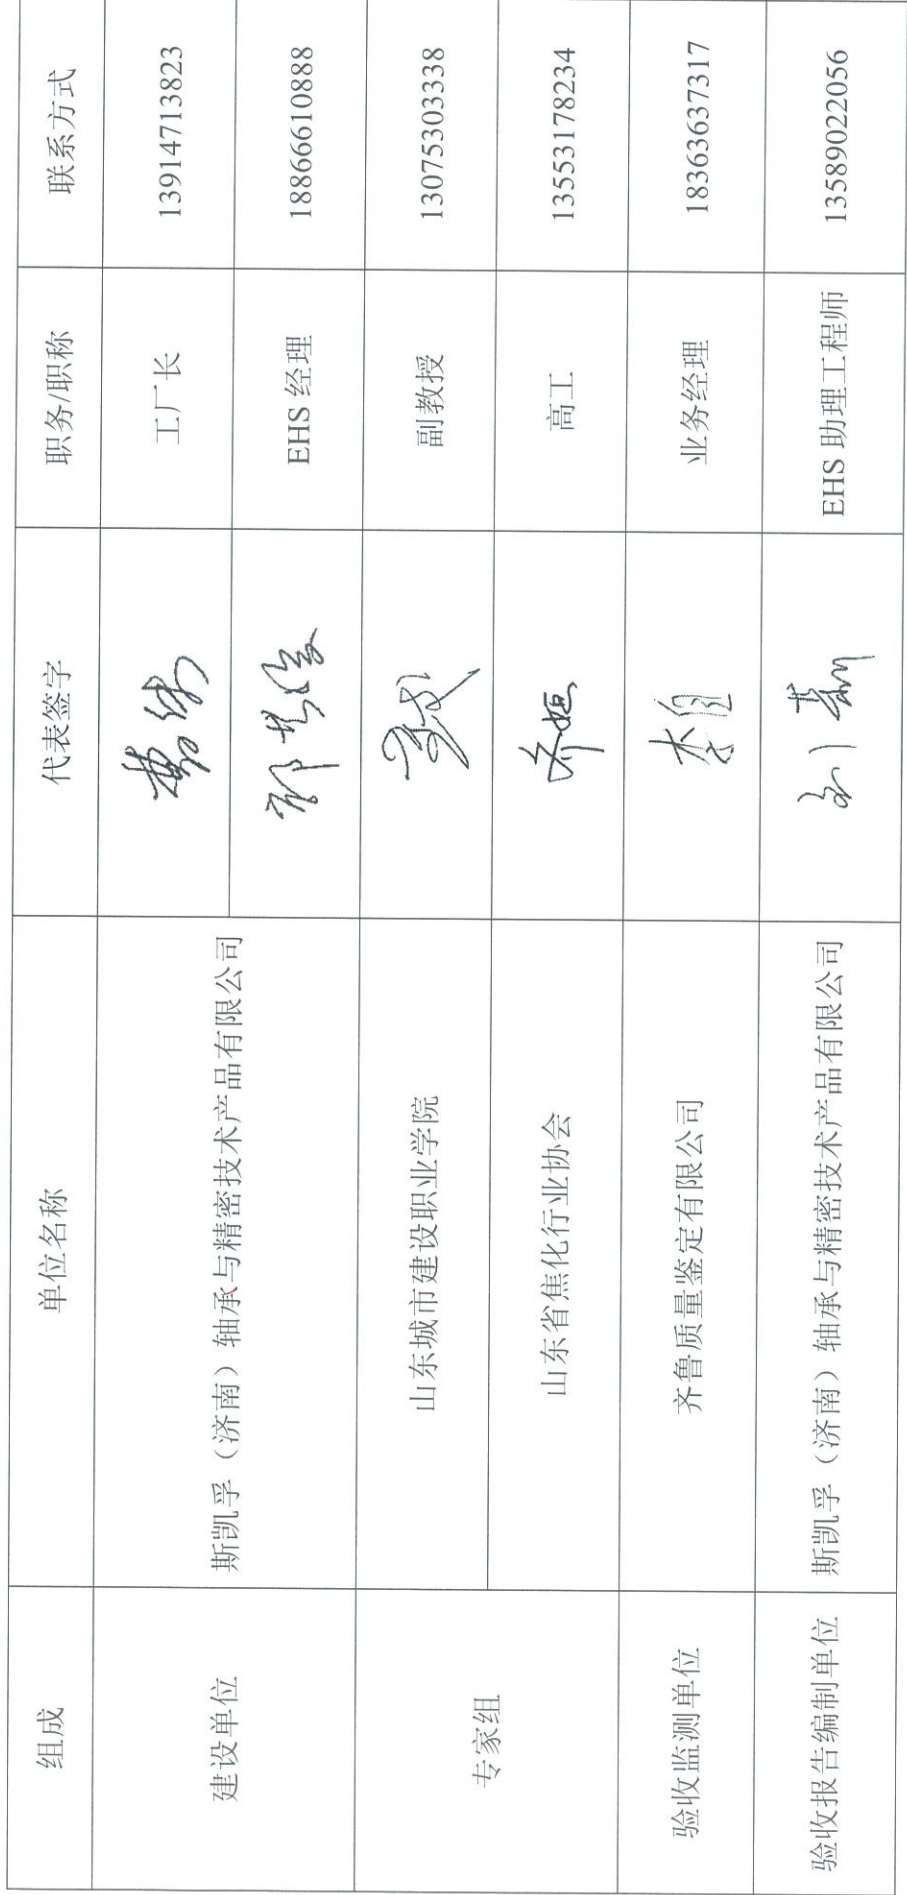 组成 单位名称 代表签字 职务/职称 联系方式
建设单位 斯凯孚（济南）轴承与精密技术产品有限公司 工厂长 13914713823
EHS 经理 18866610888
专家组 山东城市建设职业学院 副教授 13075303338
山东省焦化行业协会 乔恒 高工 13553178234
验收监测单位 齐鲁质量鉴定有限公司 业务经理 18363637317
验收报告编制单位 斯凯孚（济南）轴承与精密技术产品有限公司 EHS 助理工程师 13589022056